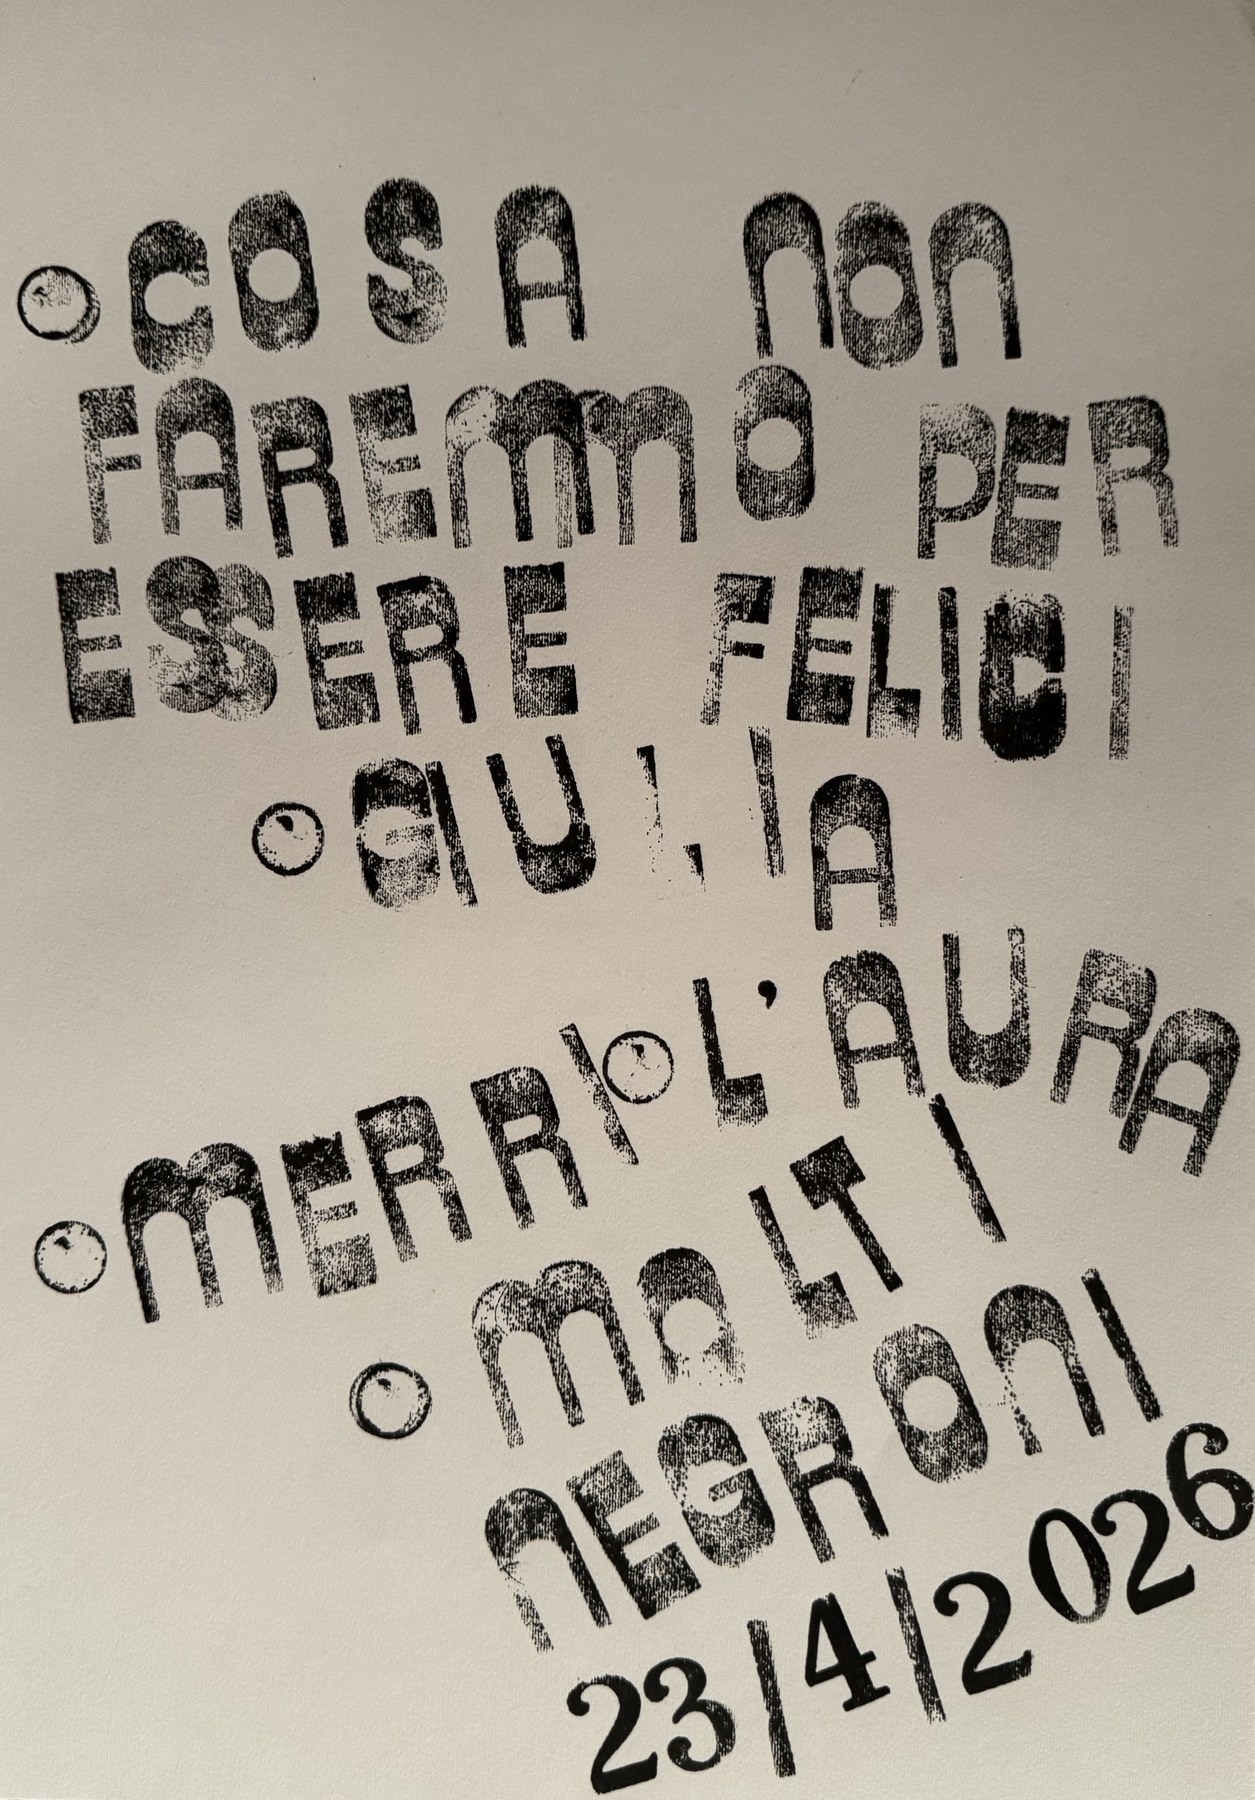 •COSA NON
FAREMMO PER
ESSERE FELICI
•GIULIA
•MERRI•L'AURA
•MOLTI
NEGRONI
23/4/2026